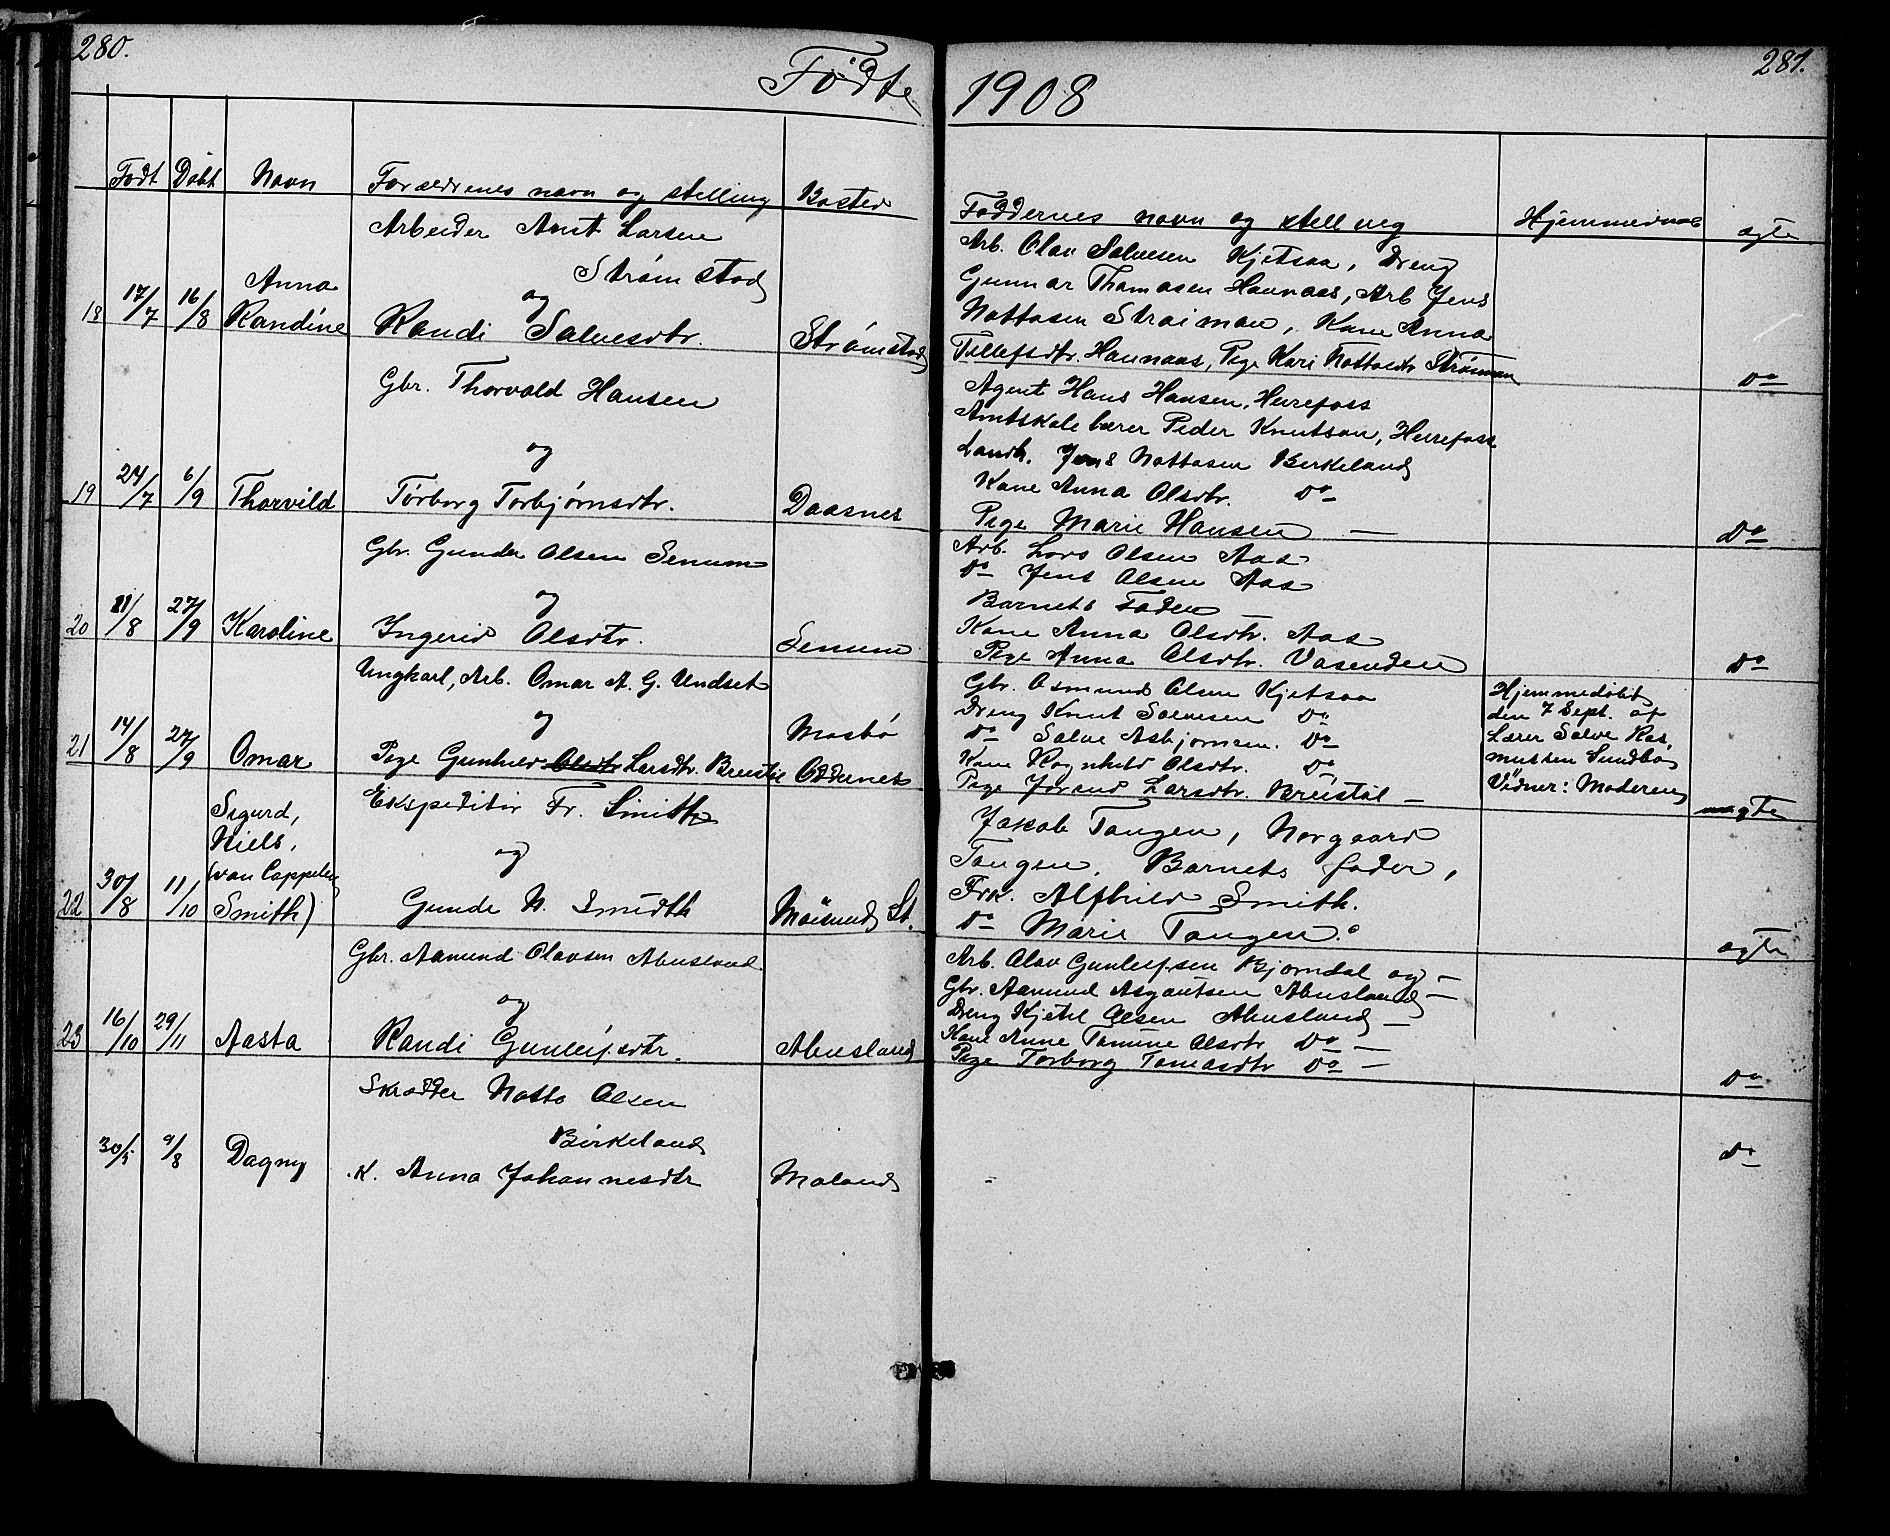 280.
Fødte
Født Døbt Navn Forældrenes navn og stilling Bosted
18 17/7 16/8 Anna Randine
Arbeider Arnt Larsen
Strømstad
og
Randi Salvesdtr. Strømstad
19 24/7 6/9 Thorvild
Gbr. Thorvald Hansen
og
Tørborg Torbjørnsdtr. Daasnes
20 11/8 27/9 Karoline
Gbr. Gunder Olsen Senum
og
Ingerid Olsdtr. Senum
21 14/8 27/9 Omar
Ungkarl, Arb. Omar A. G. Undset
og Mosbø
Pige Gunhild Olsdtr Larsdtr. Breistøl Oddernes
22 30/8 11/10 Sigurd,
Niels,
(van Cappelen
Smith)
Ekspeditør Fr. Smith
og
Gunda N. Smith Moisund St.
23 16/10 29/11 Aasta
Gbr. Aamund Olavsen Abusland
og
Randi Gunleifsdtr. Abusland
30/5 9/8 Dagny
Skrædder Notto Olsen
Birkeland
K. Anna Johannesdtr Moland
281.
1908
Faddernes navn og stilling Hjemmedøbt ægte
Arb. Olav Salvesen Kjetsaa, Dreng
Gunnar Thomasen Haunaas, Arb Jens
Nottosen Straiman, Kone Anna
Tellefsdtr. Haunaas, Pige Kari Nottosdtr Straiman
Do
Agent Hans Hansen, Herefoss
Amtskolelærer Peder Knutson, Herefoss
Landh. Jens Nottosen Birkeland
Kone Anna Olsdtr. Do
Pige Marie Hansen —
Do
Arb. Lars Olsen Aas
Do Jens Olsen Aas
Barnets Fader —
Kone Anna Olsdtr. Aas
Pige Anna Olsdtr. Vasenden
Do
Gbr. Osmund Olsen Kjetsaa
Dreng Knut Salvesen Do
Do Salve Asbjørnsen. Do
Kone Ragnhild Olsdtr. Do
Pige Jørund Larsdtr. Breistøl —
Hjemmedøbt
den 7 Sept. af
Lærer Salve Ras,
mussen Sundbø
Vidner: Moderen
uægte
Jakob Tangen, Norgaard
Tangen, Barnets fader,
Frk. Alfhild Smith.
Do Marie Tangen.
ægte
Arb. Olav Gunleifsen Bjorndal og —
Gbr. Aamund Asgautsen Abusland —
Dreng Kjetil Olsen Abusland —
Kone Anne Tomine Olsdtr Do —
Pige Torborg Tomasdtr Do —
Do
Do